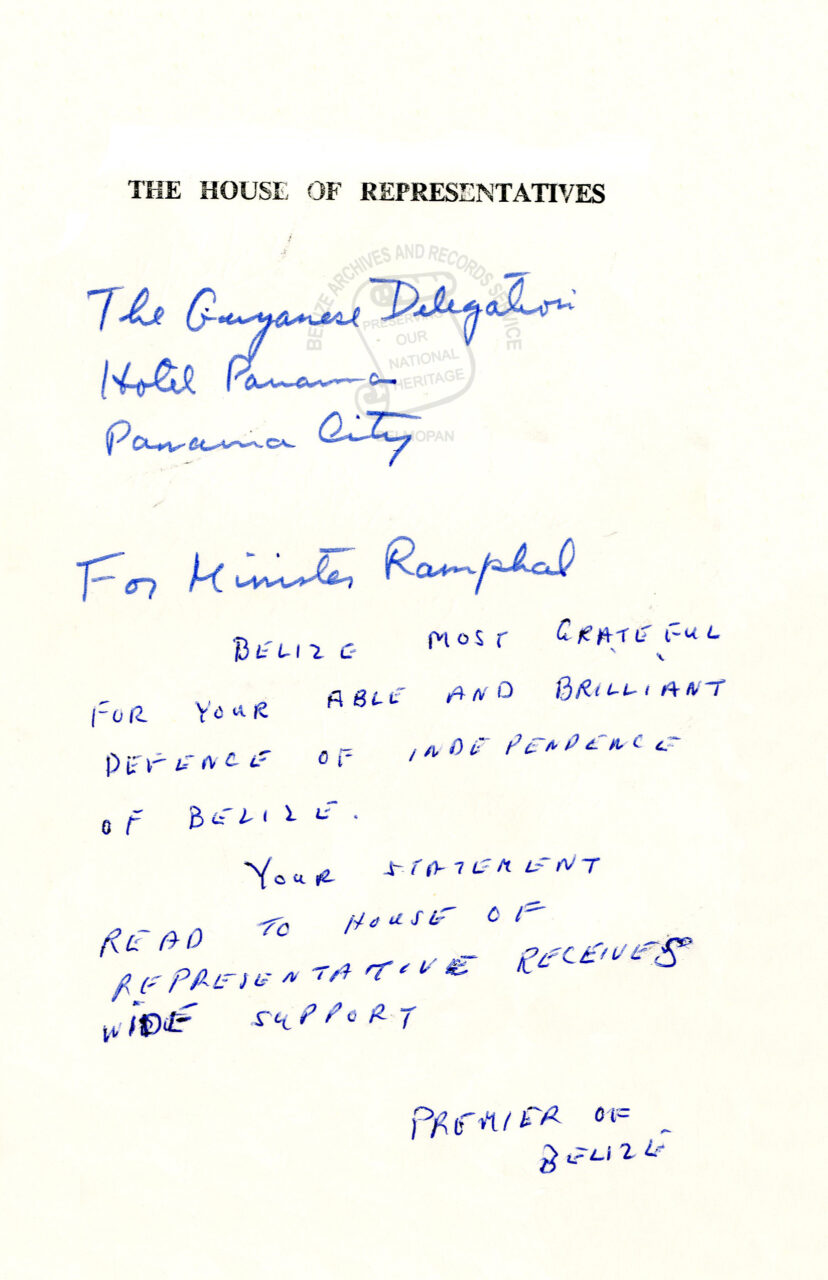 THE HOUSE OF REPRESENTATIVES
BELIZE ARCHIVES AND RECORDS SERVICE
PRESERVING
OUR
NATIONAL
HERITAGE
BELMOPAN
The Guyanese Delegation
Hotel Panama
Panama City
For Minister Ramphal
BELIZE MOST GRATEFUL
FOR YOUR ABLE AND BRILLIANT
DEFENCE OF INDEPENDENCE
OF BELIZE.
YOUR STATEMENT
READ TO HOUSE OF
REPRESENTATIVE RECEIVES
WIDE SUPPORT
PREMIER OF
BELIZE